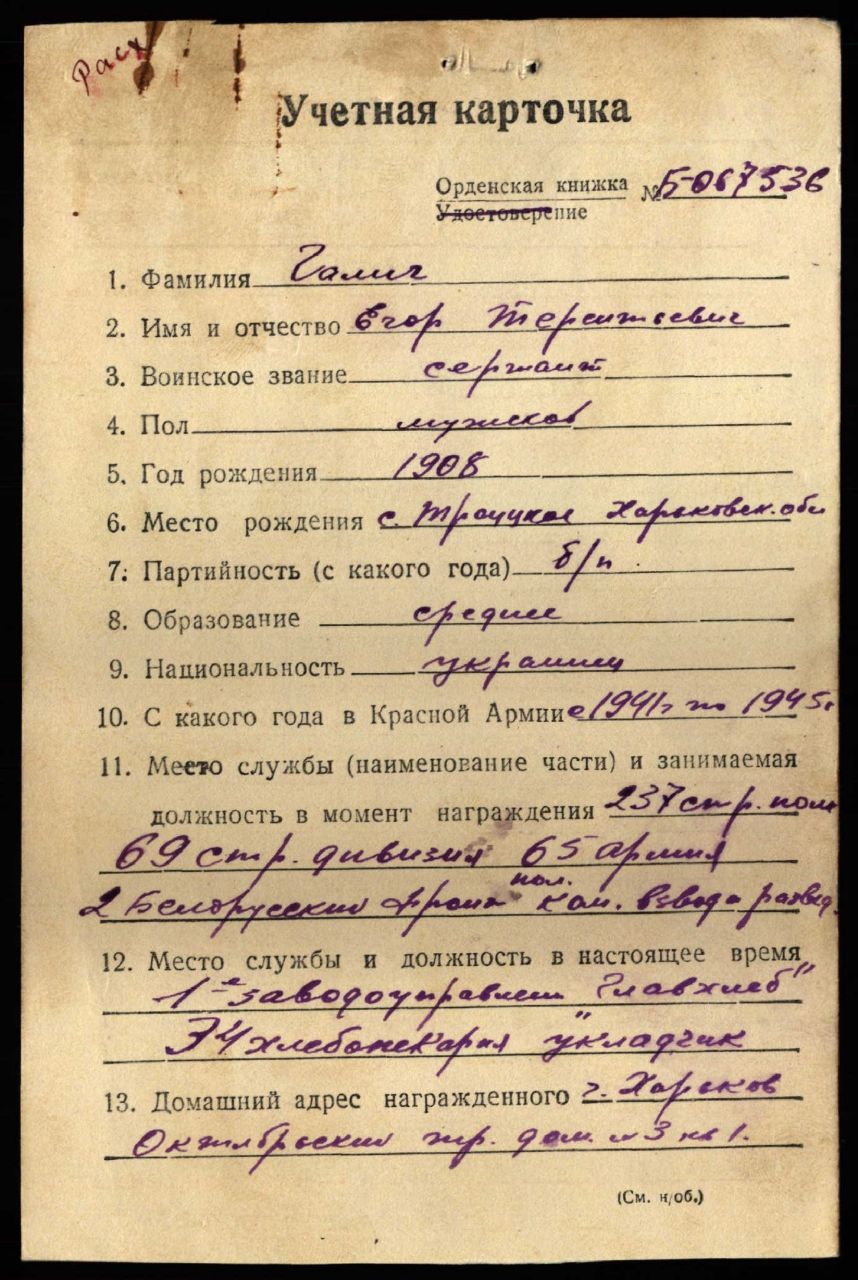 Расх
Учетная карточка
Орденская книжка № Б-067536
Удостоверение
1. Фамилия Галич
2. Имя и отчество Егор Терентьевич
3. Воинское звание сержант
4. Пол мужской
5. Год рождения 1908
6. Место рождения с. Троицкое Харьковск. обл
7. Партийность (с какого года) б/п
8. Образование среднее
9. Национальность украинец
10. С какого года в Красной Армии с 1941г по 1945г
11. Место службы (наименование части) и занимаемая
должность в момент награждения 237 стр. полк
69 стр. дивизия 65 армия
2 Белорусский фронт пом. ком. взвода развед.
12. Место службы и должность в настоящее время
1е заводоуправлен "Главхлеб"
хлебопекария "укладчик
13. Домашний адрес награжденного г. Харьков
Октябрьский дом. № 3 кв 1.
(См. н/об.)